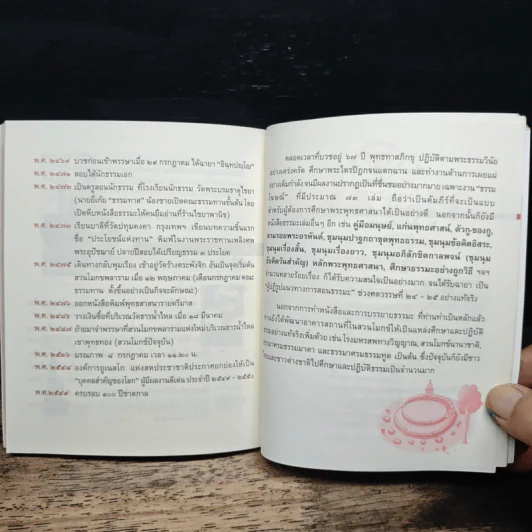 พ.ศ. ๒๔๖๙ บวชก่อนเข้าพรรษาเมื่อ ๒๙ กรกฎาคม ได้ฉายา "อินฺทปญฺโญ"
พ.ศ. ๒๔๗๑ สอบได้นักธรรมเอก
เป็นครูสอนนักธรรม ที่โรงเรียนนักธรรม วัดพระบรมธาตุไชยา
(นายยี่เกย "ธรรมทาส" น้องชายเปิดคณะธรรมทานขั้นต้น โดย
เปิดหีบหนังสือธรรมะให้คนยืมอ่านที่ร้านไชยาพานิช)
เรียนบาลีที่วัดปทุมคงคา กรุงเทพฯ เขียนบทความชิ้นแรก
ชื่อ "ประโยชน์แห่งทาน" พิมพ์ในงานพระราชทานเพลิงศพ
พระอุปัชฌาย์ ปลายปีสอบได้เปรียญธรรม ๓ ประโยค
พ.ศ. ๒๔๗๕ เดินทางกลับพุมเรียง เข้าอยู่วัดร้างตระพังจิก อันเป็นจุดเริ่มต้น
สวนโมกขพลาราม เมื่อ ๑๒ พฤษภาคม (เดือนกรกฎาคม คณะ
ธรรมทาน ตั้งขึ้นอย่างเป็นกิจจะลักษณะ)
ออกหนังสือพิมพ์พุทธสาสนารายตรีมาส
วางเงินซื้อที่บริเวณวัดธารน้ำไหล เมื่อ ๑๘ มีนาคม
ย้ายมาจำพรรษาที่สวนโมกขพลารามแห่งใหม่บริเวณธารน้ำไหล
เขาพุทธทอง (สวนโมกข์ปัจจุบัน)
พ.ศ. ๒๕๓๖ มรณภาพ ๘ กรกฎาคม เวลา ๑๑.๒๐ น.
องค์การยูเนสโก แห่งสหประชาชาติประกาศยกย่องให้เป็น
"บุคคลสำคัญของโลก" ผู้มีผลงานดีเด่น ประจำปี ๒๕๔๙ - ๒๕๕๐
พ.ศ. ๒๕๔๙ ครบรอบ ๑๐๐ ปีชาตกาล
ตลอดเวลาที่บวชอยู่ ๖๗ ปี พุทธทาสภิกขุ ปฏิบัติตามพระธรรมวินัย
อย่างเคร่งครัด ศึกษาพระไตรปิฎกจนแตกฉาน และทำงานด้านการเผยแผ่
อย่างเต็มกำลัง จนมีผลงานปรากฏเป็นที่ชื่นชมอย่างมากมาย เฉพาะงาน "ธรรม
โฆษณ์" ที่มีประมาณ ๗๓ เล่ม ถือว่าเป็นคัมภีร์ที่จะเป็นแบบ
สำหรับผู้ต้องการศึกษาพระพุทธศาสนาได้เป็นอย่างดี นอกจากนั้นก็ยังมี
หนังสือธรรมะเล่มอื่นๆ อีก เช่น คู่มือมนุษย์, แก่นพุทธศาสน์, ตัวกู-ของกู,
ตามรอยพระอรหันต์, ชุมนุมปาฐกถาชุดพุทธธรรม, ชุมนุมข้อคิดอิสระ,
ชุมนุมเรื่องสั้น, ชุมนุมเรื่องยาว, ชุมนุมอภิลักขิตกาลพจน์ (ชุมนุม
ข้อคิดวันสำคัญ) หลักพระพุทธศาสนา, ศึกษาธรรมะอย่างถูกวิธี ฯลฯ
งานหลายร้อยเรื่อง ก็ได้รับความสนใจเป็นอย่างมาก จนได้รับฉายา เป็น
"ผู้ปฏิรูปแนวทางการสอนธรรมะ" ช่วงศตวรรษที่ ๒๔ - ๒๕ อย่างแท้จริง
นอกจากการทำหนังสือและการบรรยายธรรมะ ที่ท่านทำเป็นหลักแล้ว
ยังได้พัฒนาอาคารสถานที่ในสวนโมกข์ให้เป็นแหล่งศึกษาและปฏิบัติ
ธรรมอย่างแท้จริงเพิ่มด้วย เช่น โรงมหรสพทางวิญญาณ, สวนโมกข์นานาชาติ,
ธรรมาศรมธรรมมาตา และธรรมาศรมธรรมทูต เป็นต้น ซึ่งปัจจุบันก็ยังมีชาว
ไทยและชาวต่างชาติไปศึกษาและปฏิบัติธรรมเป็นจำนวนมาก